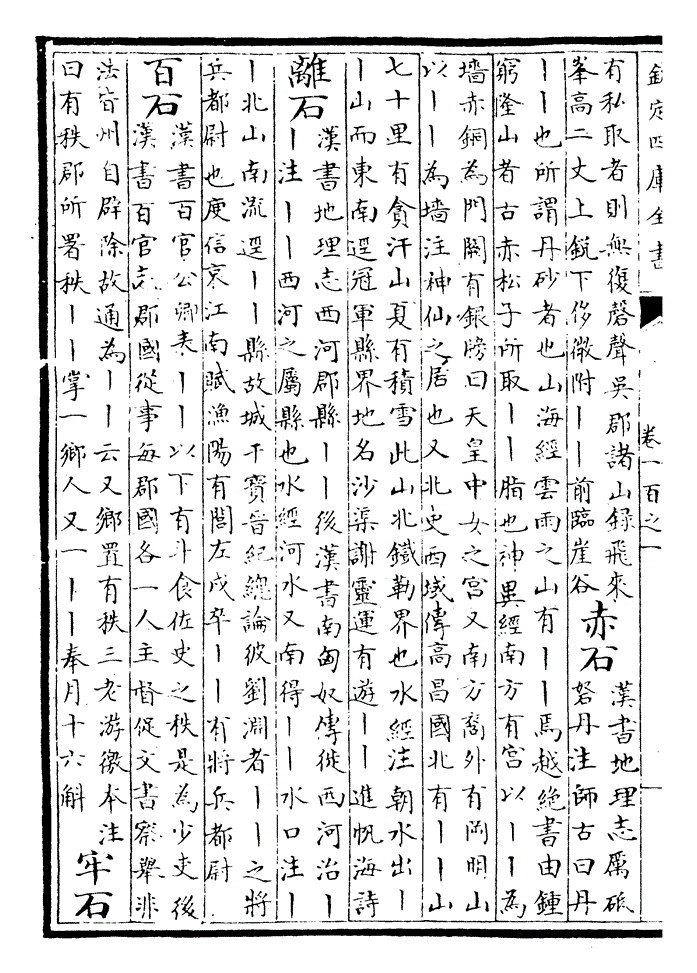 欽定四庫全書
卷一百之一
有私取者則無復磬聲吳郡諸山錄飛來
峯高二丈上銳下侈微附丨丨前臨崖谷
赤石
漢書地理志厲砥
砮丹注師古曰丹
丨丨也所謂丹砂者也山海經雲雨之山有丨丨焉越絶書由鍾
窮隆山者古赤松子所取丨丨脂也神異經南方有宫以丨丨為
墻赤銅為門闕有銀牓曰天皇中女之宫又南方裔外有岡明山
以丨丨為墻注神仙之居也又北史西域傳高昌國北有丨丨山
七十里有貪汗山夏有積雪此山北鐵勒界也水經注朝水出丨
丨山而東南逕冠軍縣界地名沙渠謝靈運有遊丨丨進帆海詩
離石
漢書地理志西河郡縣丨丨後漢書南匈奴傳徙西河治丨
丨注丨丨西河之屬縣也水經河水又南得丨丨水口注丨
丨北山南流逕丨丨縣故城干寶晉紀總論彼劉淵者丨丨之將
兵都尉也庾信哀江南賦漁陽有閭左戍卒丨丨有將兵都尉
百石
漢書百官公卿表丨丨以下有斗食佐史之秩是為少吏後
漢書百官志郡國從事每郡國各一人主督促文書察舉非
法皆州自辟除故通為丨丨云又鄉置有秩三老游徼本注
曰有秩郡所署秩丨丨掌一鄉人又一丨丨奉月十六斛
牢石